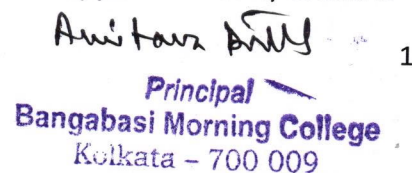 Amitava
1
Principal
Bangabasi Morning College
Kolkata – 700 009